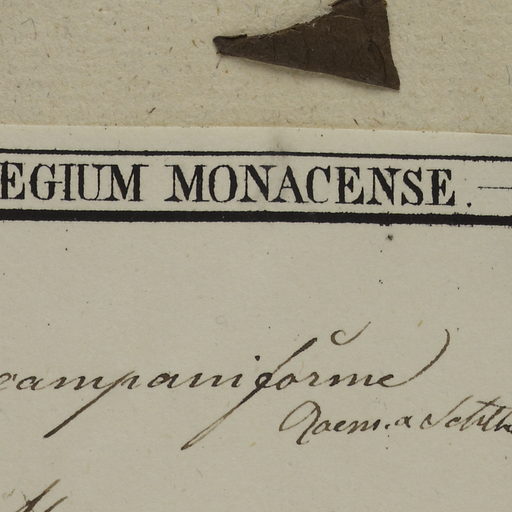 EGIUM MONACENSE.
campaniforme
Roem. a Schlt